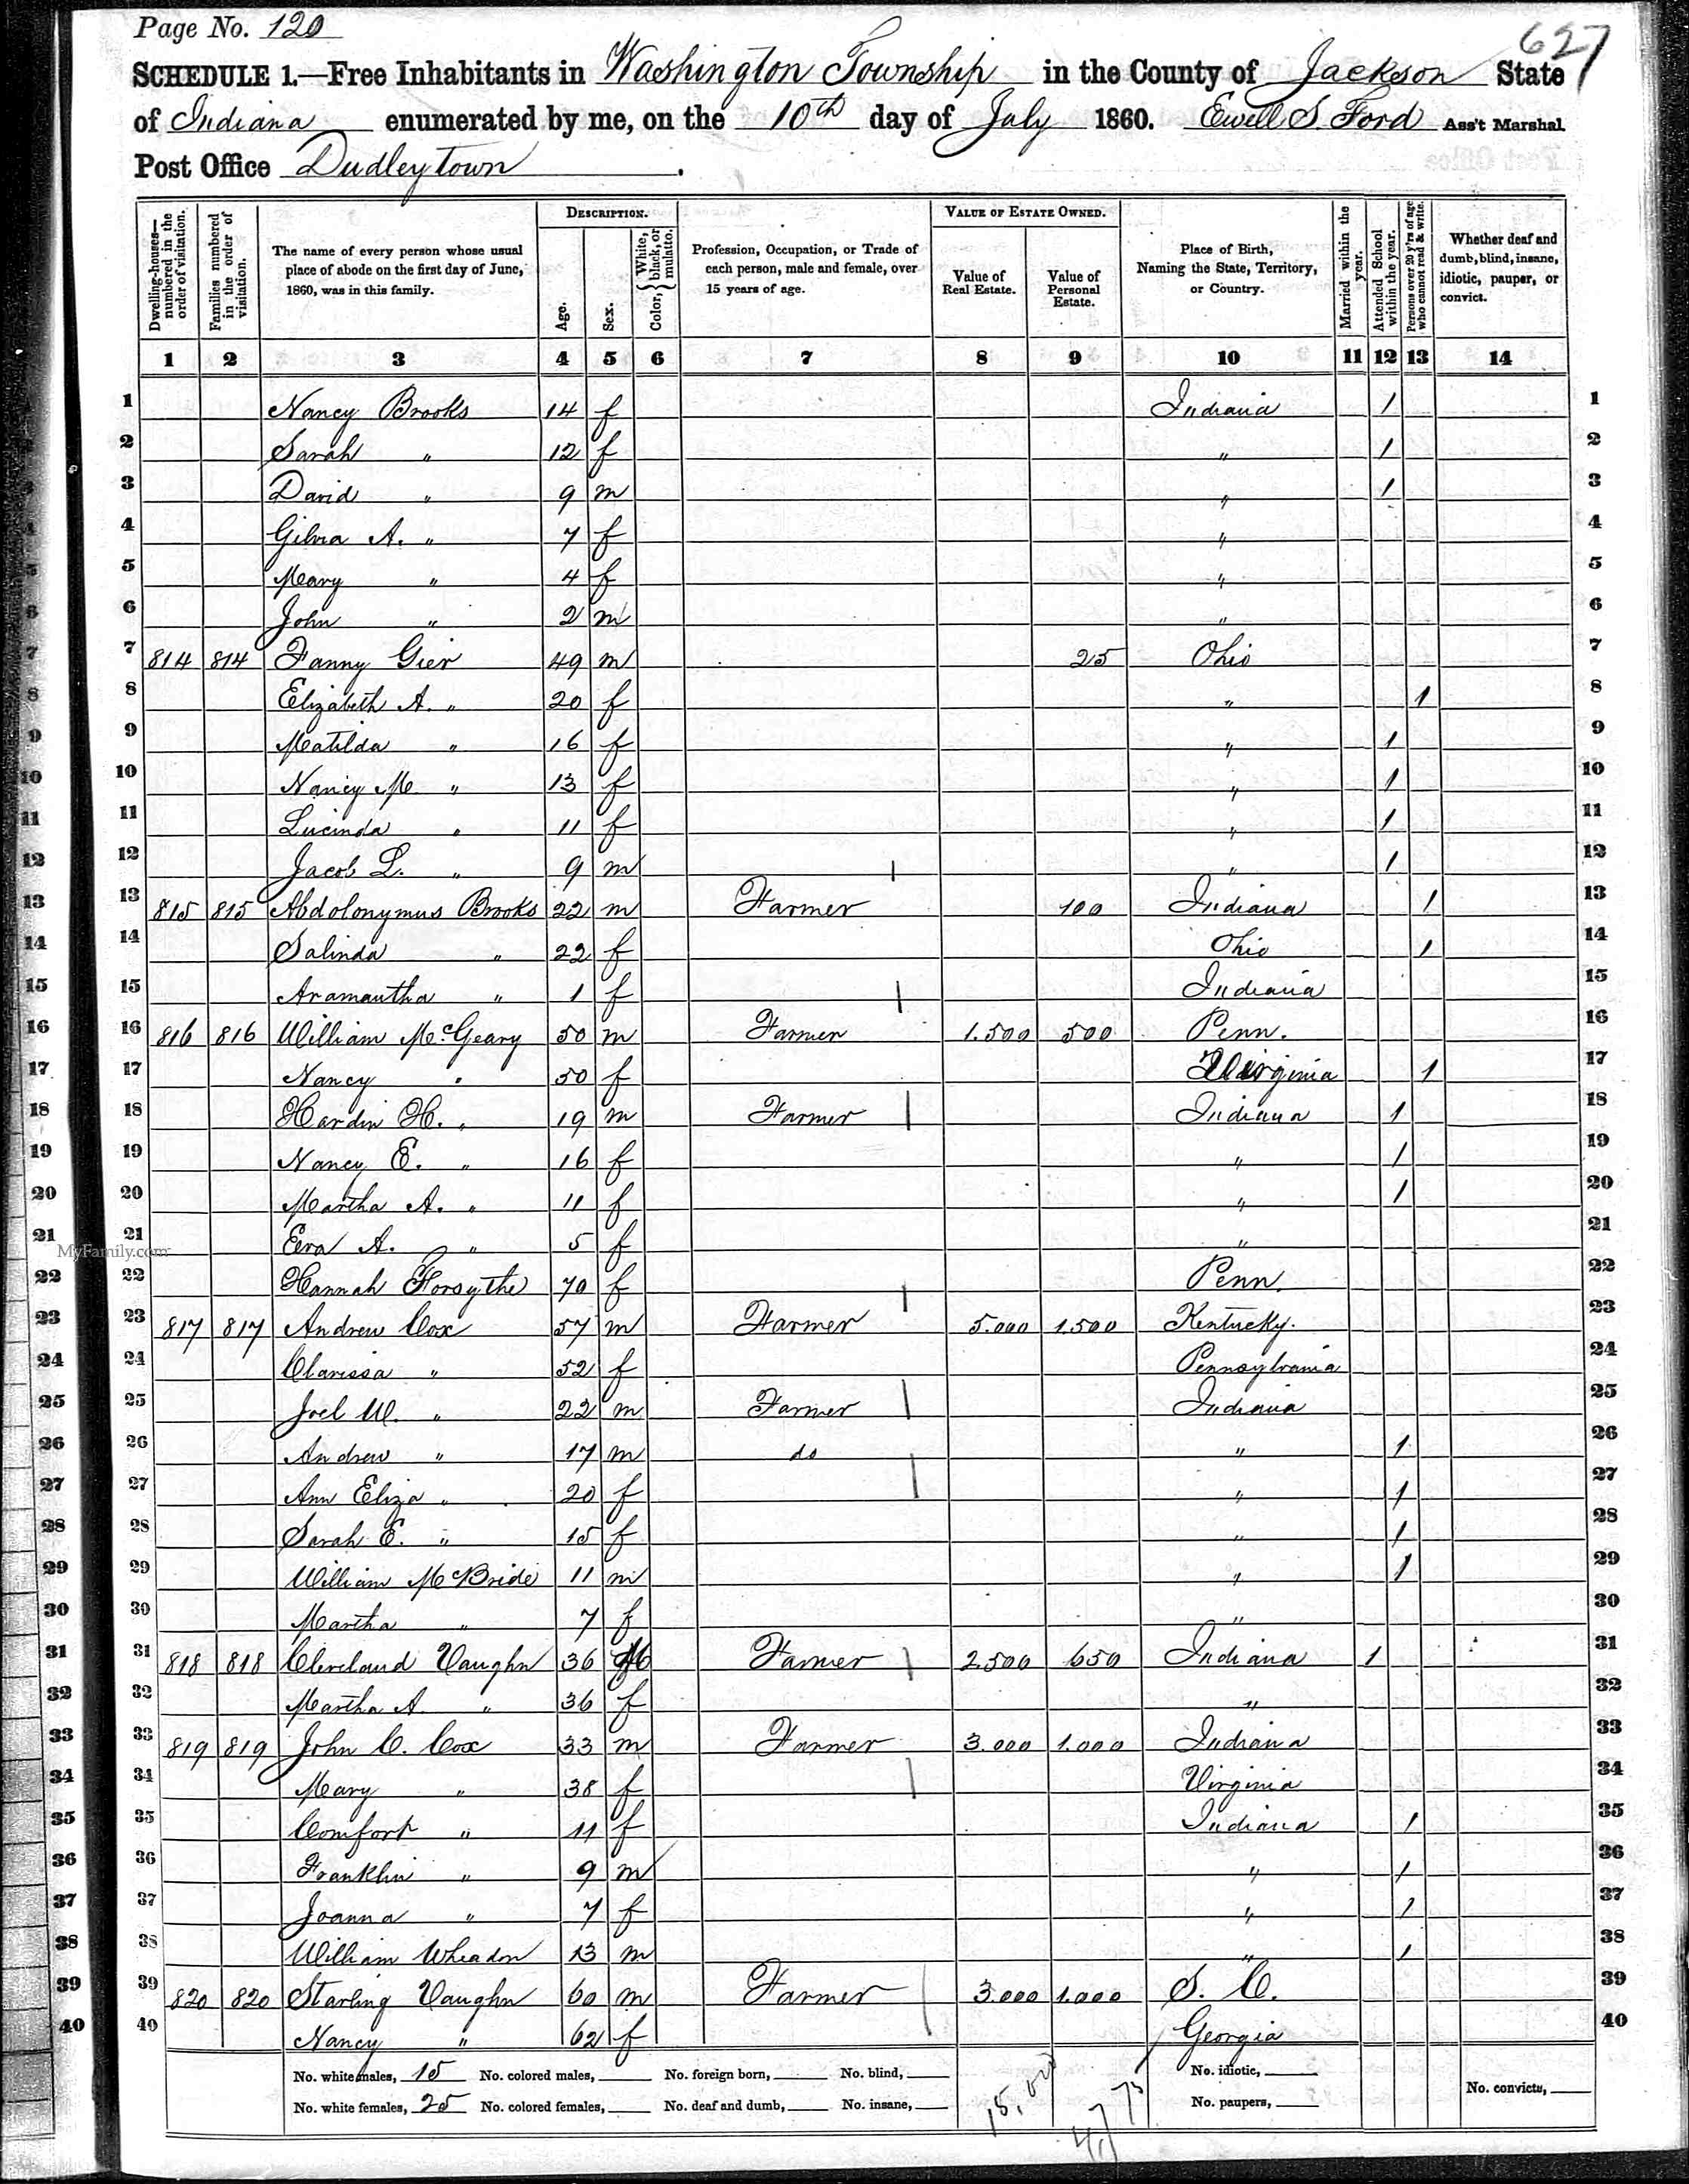 Page No. 120
627
SCHEDULE 1.—Free Inhabitants in Washington Township in the County of Jackson State
of Indiana enumerated by me, on the 10th day of July 1860. Ewell S. Ford Ass't Marshal.
Post Office Dudleytown.
Dwelling-houses—numbered in the order of visitation.
Families numbered in the order of visitation.
The name of every person whose usual place of abode on the first day of June, 1860, was in this family.
DESCRIPTION.
Age.
Sex.
Color, { White, black, or mulatto.
Profession, Occupation, or Trade of each person, male and female, over 15 years of age.
VALUE OF ESTATE OWNED.
Value of Real Estate.
Value of Personal Estate.
Place of Birth, Naming the State, Territory, or Country.
Married within the year.
Attended School within the year.
Persons over 20 y'rs of age who cannot read & write.
Whether deaf and dumb, blind, insane, idiotic, pauper, or convict.
1 2 3 4 5 6 7 8 9 10 11 12 13 14
1 Nancy Brooks 14 f Indiana 1 1
2 Sarah " 12 f " 1 2
3 David " 9 m " 1 3
4 Gilvia A. " 7 f " 4
5 Mary " 4 f " 5
6 John " 2 m " 6
7 814 814 Fanny Gier 49 m 25 Ohio 7
8 Elizabeth A. " 20 f " 1 8
9 Matilda " 16 f " 1 9
10 Nancy M. " 13 f " 1 10
11 Lucinda " 11 f " 1 11
12 Jacob L. " 9 m " 1 12
13 815 815 Abdolonymus Brooks 22 m Farmer 100 Indiana 1 13
14 Salinda " 22 f Ohio 1 14
15 Aramantha " 1 f Indiana 15
16 816 816 William McGeary 50 m Farmer 1.500 500 Penn. 16
17 Nancy " 50 f Virginia 1 17
18 Hardin H. " 19 m Farmer Indiana 1 18
19 Nancy E. " 16 f " 1 19
20 Martha A. " 11 f " 1 20
21 Eva A. " 5 f " 21
MyFamily.com
22 Hannah Forsythe 70 f Penn. 22
23 817 817 Andrew Cox 57 m Farmer 5.000 1.500 Kentucky. 23
24 Clarissa " 52 f Pennsylvania 24
25 Joel W. " 22 m Farmer Indiana 25
26 Andrew " 17 m do " 1 26
27 Ann Eliza " 20 f " 1 27
28 Sarah E. " 15 f " 1 28
29 William McBride 11 m " 1 29
30 Martha " 7 f " 30
31 818 818 Cleveland Vaughn 36 M Farmer 2.500 650 Indiana 1 31
32 Martha A. " 36 f " 32
33 819 819 John C. Cox 33 m Farmer 3.000 1.000 Indiana 33
34 Mary " 38 f Virginia 34
35 Comfort " 11 f Indiana 1 35
36 Franklin " 9 m " 1 36
37 Joanna " 7 f " 1 37
38 William Wheadon 13 m " 1 38
39 820 820 Starling Vaughn 60 m Farmer 3.000 1.000 S. C. 39
40 Nancy " 62 f Georgia 40
No. white males, 15 No. colored males, No. foreign born, No. blind, No. idiotic,
No. white females, 25 No. colored females, No. deaf and dumb, No. insane, No. paupers, No. convicts,